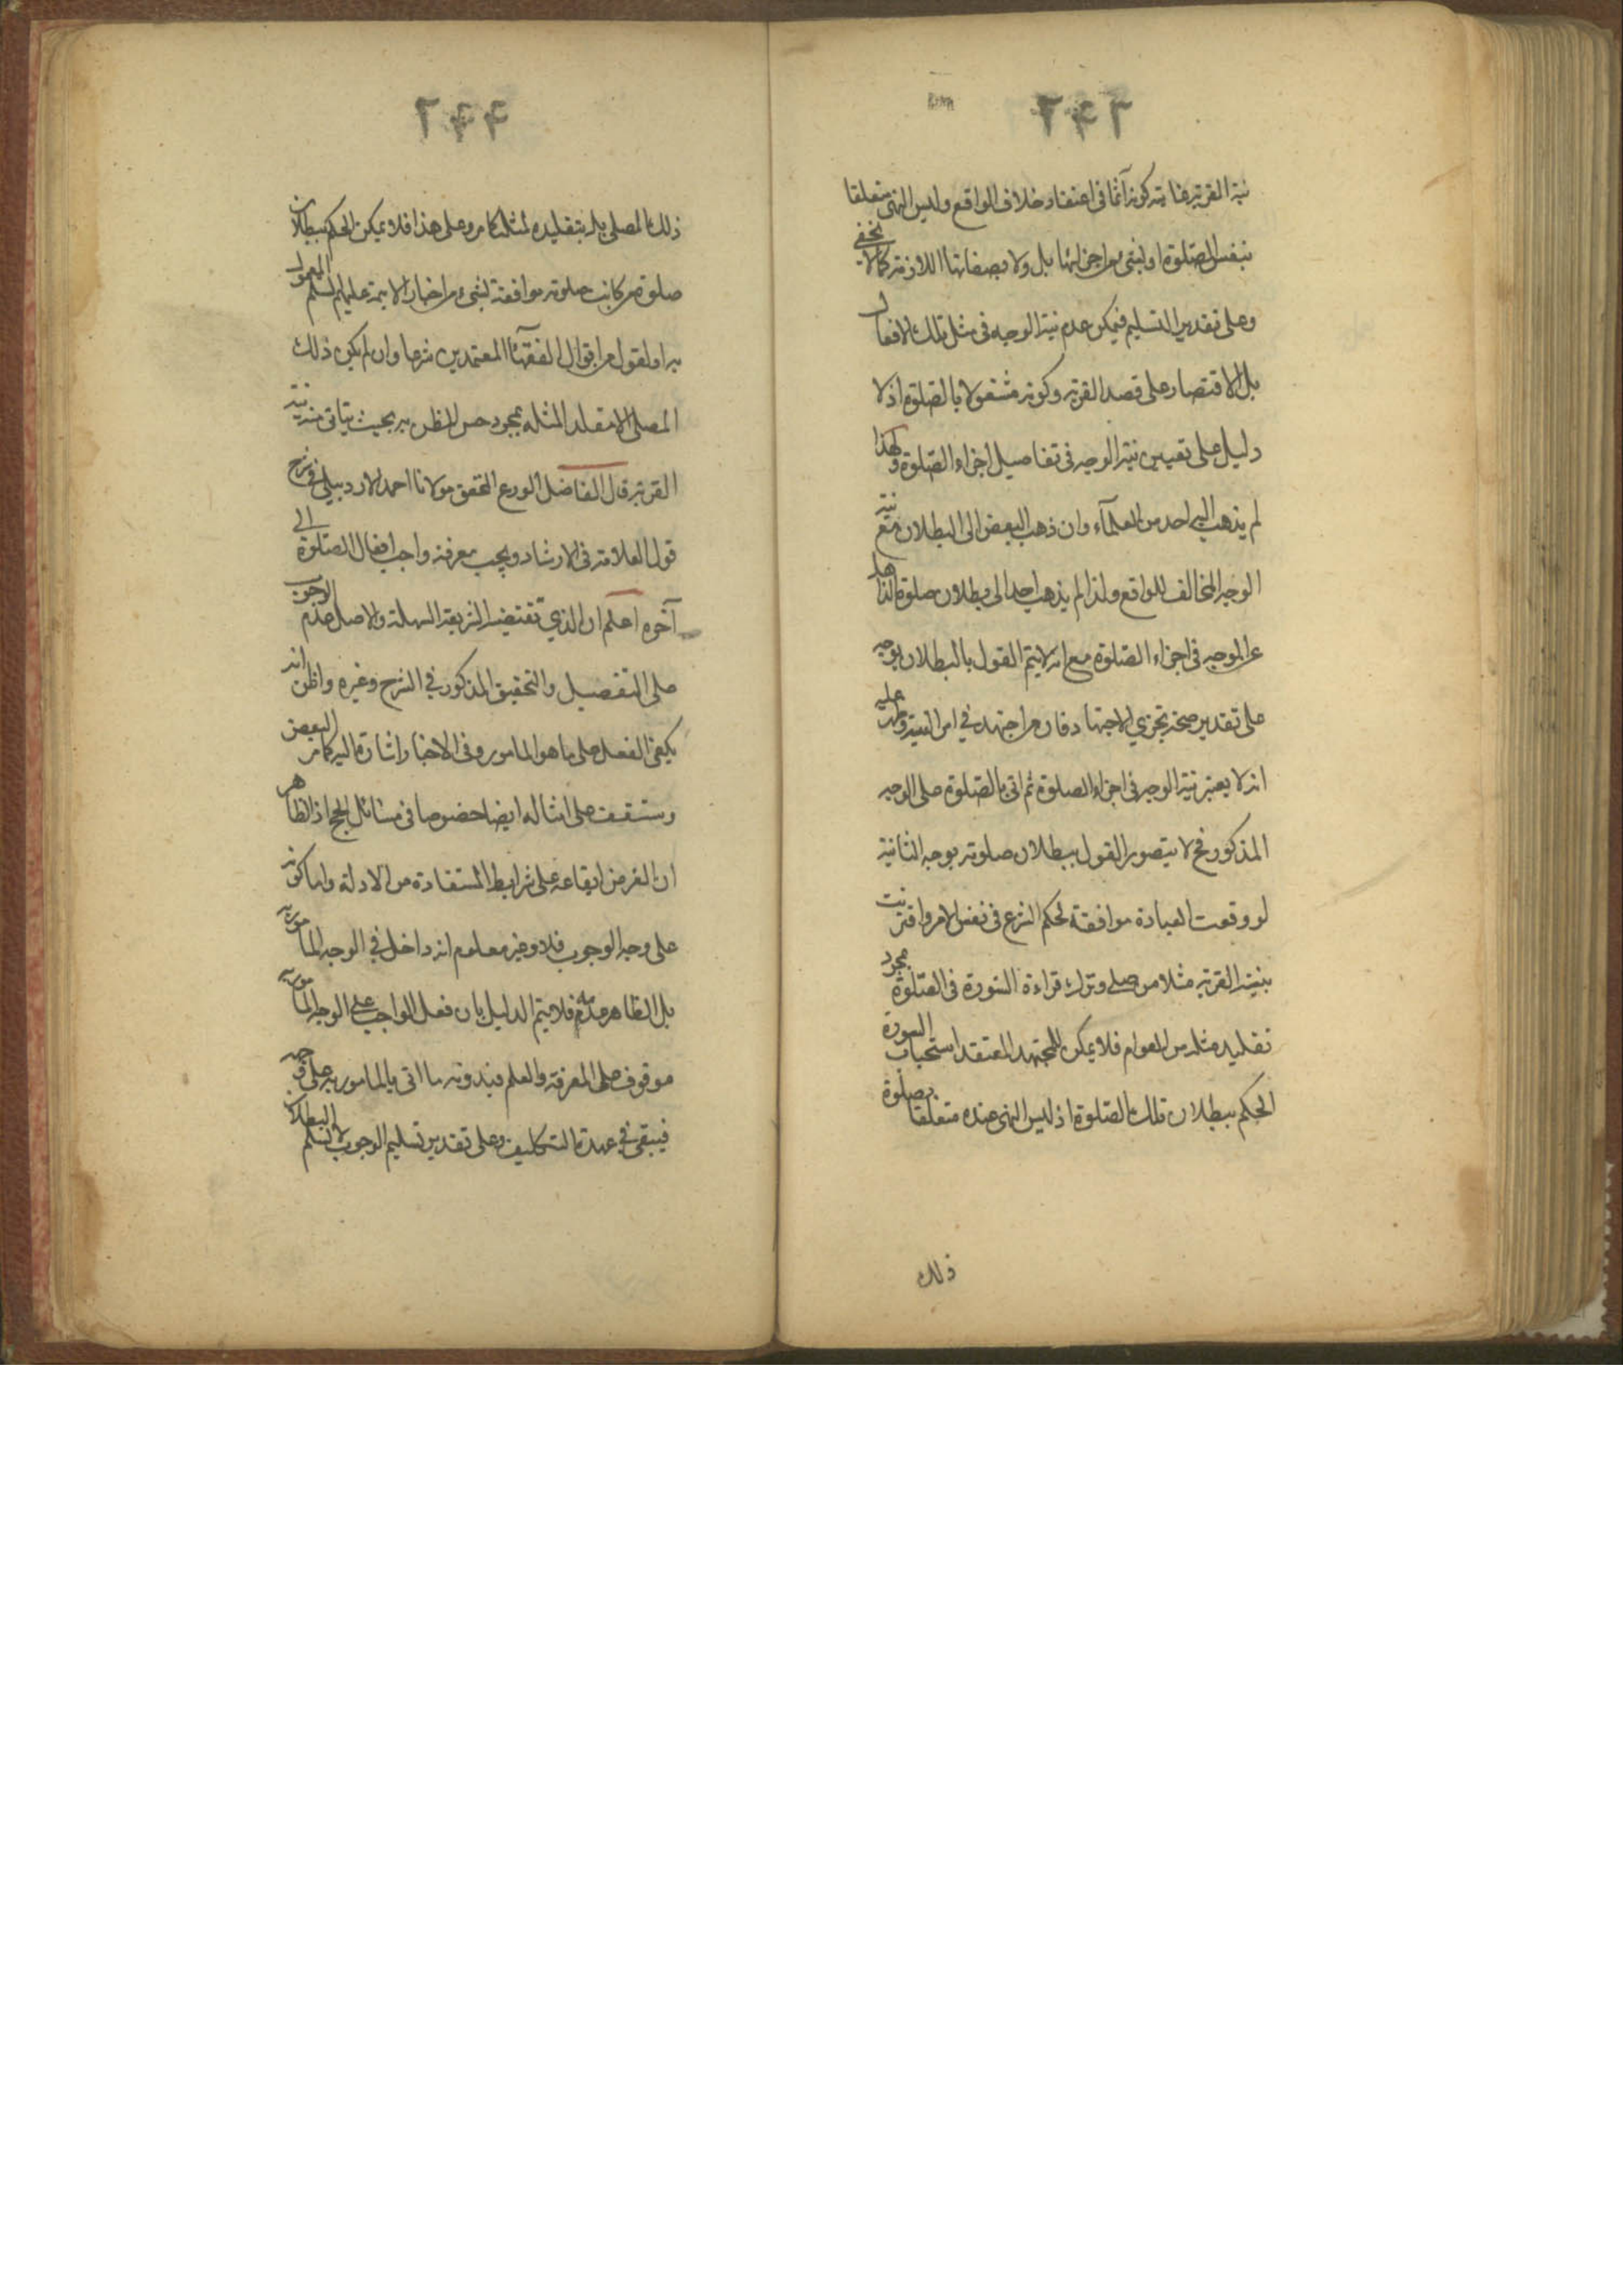 ٢٤٣
نية القربة غايته كونه آثما في اعتقاده خلاف الواقع وليس النهي متعلقا
بنفس الصلوة او بشئ من اجزائها بل ولا بصفاتها اللازمة كما لا يخفى
وعلى تقدير التسليم فيمكن عدم نية الوجه في مثل تلك الافعال
بل الاقتصار على قصد القربة وكونه مشغولا بالصلوة اذ لا
دليل على تعيين نية الوجه في تفاصيل اجزاء الصلوة ولهذا
لم يذهب اليه احد من العلمآء وان ذهب البعض الى البطلان مع نية
الوجه المخالف للواقع ولذا لم يذهب احد الى بطلان صلوة الذاهل
عن الوجه في اجزاء الصلوة مع انه لا يتم القول بالبطلان بوجه
على تقدير صحة تجزي الاجتهاد فان من اجتهد في امر النية وظهر عليه
انه لا يعتبر نية الوجه في اجزاء الصلوة ثم اتى بالصلوة على الوجه
المذكور فح لا يتصور القول ببطلان صلوته بوجه الثانية
لو وقعت العبادة موافقة لحكم الشرع في نفس الامر واقترنت
بنية القربة مثلا من صلى وترك قراءة السورة في الصلوة بمجرد
تقليد مثله من العوام فلا يمكن للمجتهد المعتقد استحباب السورة
الحكم ببطلان تلك الصلوة اذ ليس النهي عنده متعلقا بصلوة
ذلك
٢٤٤
ذلك المصلي بل بتقليده لمثله كما مر وعلى هذا فلا يمكن الحكم ببطلان
صلوة من كانت صلوته موافقة لشئ من اخبار الائمة عليهم السلم المعمول
به او لقول من اقوال الفقهآء المعتمدين شرعا وان لم يكن ذلك
المصلي الا مقلدا لمثله بمجرد حسن الظن به بحيث يتاتى منه نية
القربة قال الفاضل الورع المحقق مولانا احمد الاردبيلي في شرح
قول العلامة في الارشاد ويجب معرفة واجب افعال الصلوة الى
آخره اعلم ان الذي تقتضيه الشريعة السهلة والاصل عدم الوجوب
على التفصيل والتحقيق المذكور في الشرح وغيره واظن انه
يكفي الفعل على ما هو المامور وفي الاخبار اشارة اليه كما مر البعض
وستقف على امثاله ايضا خصوصا في مسائل الحج اذ الظاهر
ان الغرض ايقاعه على شرايط المستفادة من الادلة واما كونه
على وجه الوجوب فلا وغير معلوم انه داخل في الوجه المامور به
بل الظاهر عدمه فلا يتم الدليل بان فعل الواجب على الوجه المامور به
موقوف على المعرفة والعلم فبدونه ما اتى بالمامور به على وجهه
فيبقى في عهدة التكليف وعلى تقدير تسليم الوجوب لا نسلم البطلان